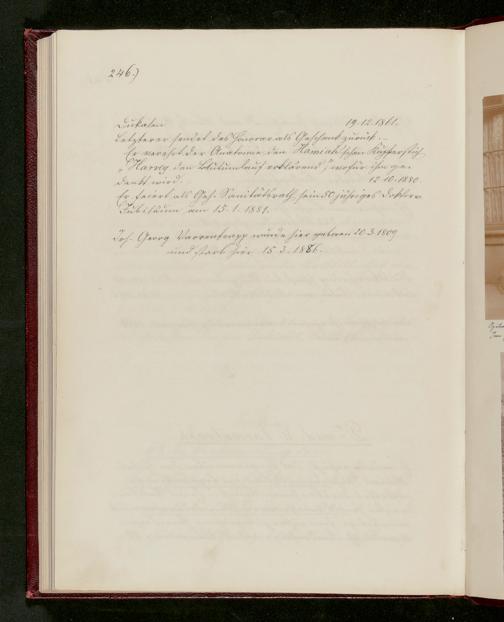 246.)
Dukaten 19.12.1861.
Letzterer sendet das Honorar als Geschenk zurück.
Er verehrt der Anatomie den Hannah'schen Kupferstich
"Harvey den Blutumlauf erklärend", wofür ihm ge-
dankt wird. 15.10.1880.
Er feiert als Geh. Sanitätsrath sein 50 jähriges Doktor-
Jubiläum am 15.1.1881.
Joh. Georg Varrentrapp wurde hier geboren 20.3.1809
und starb hier 15.3.1886.